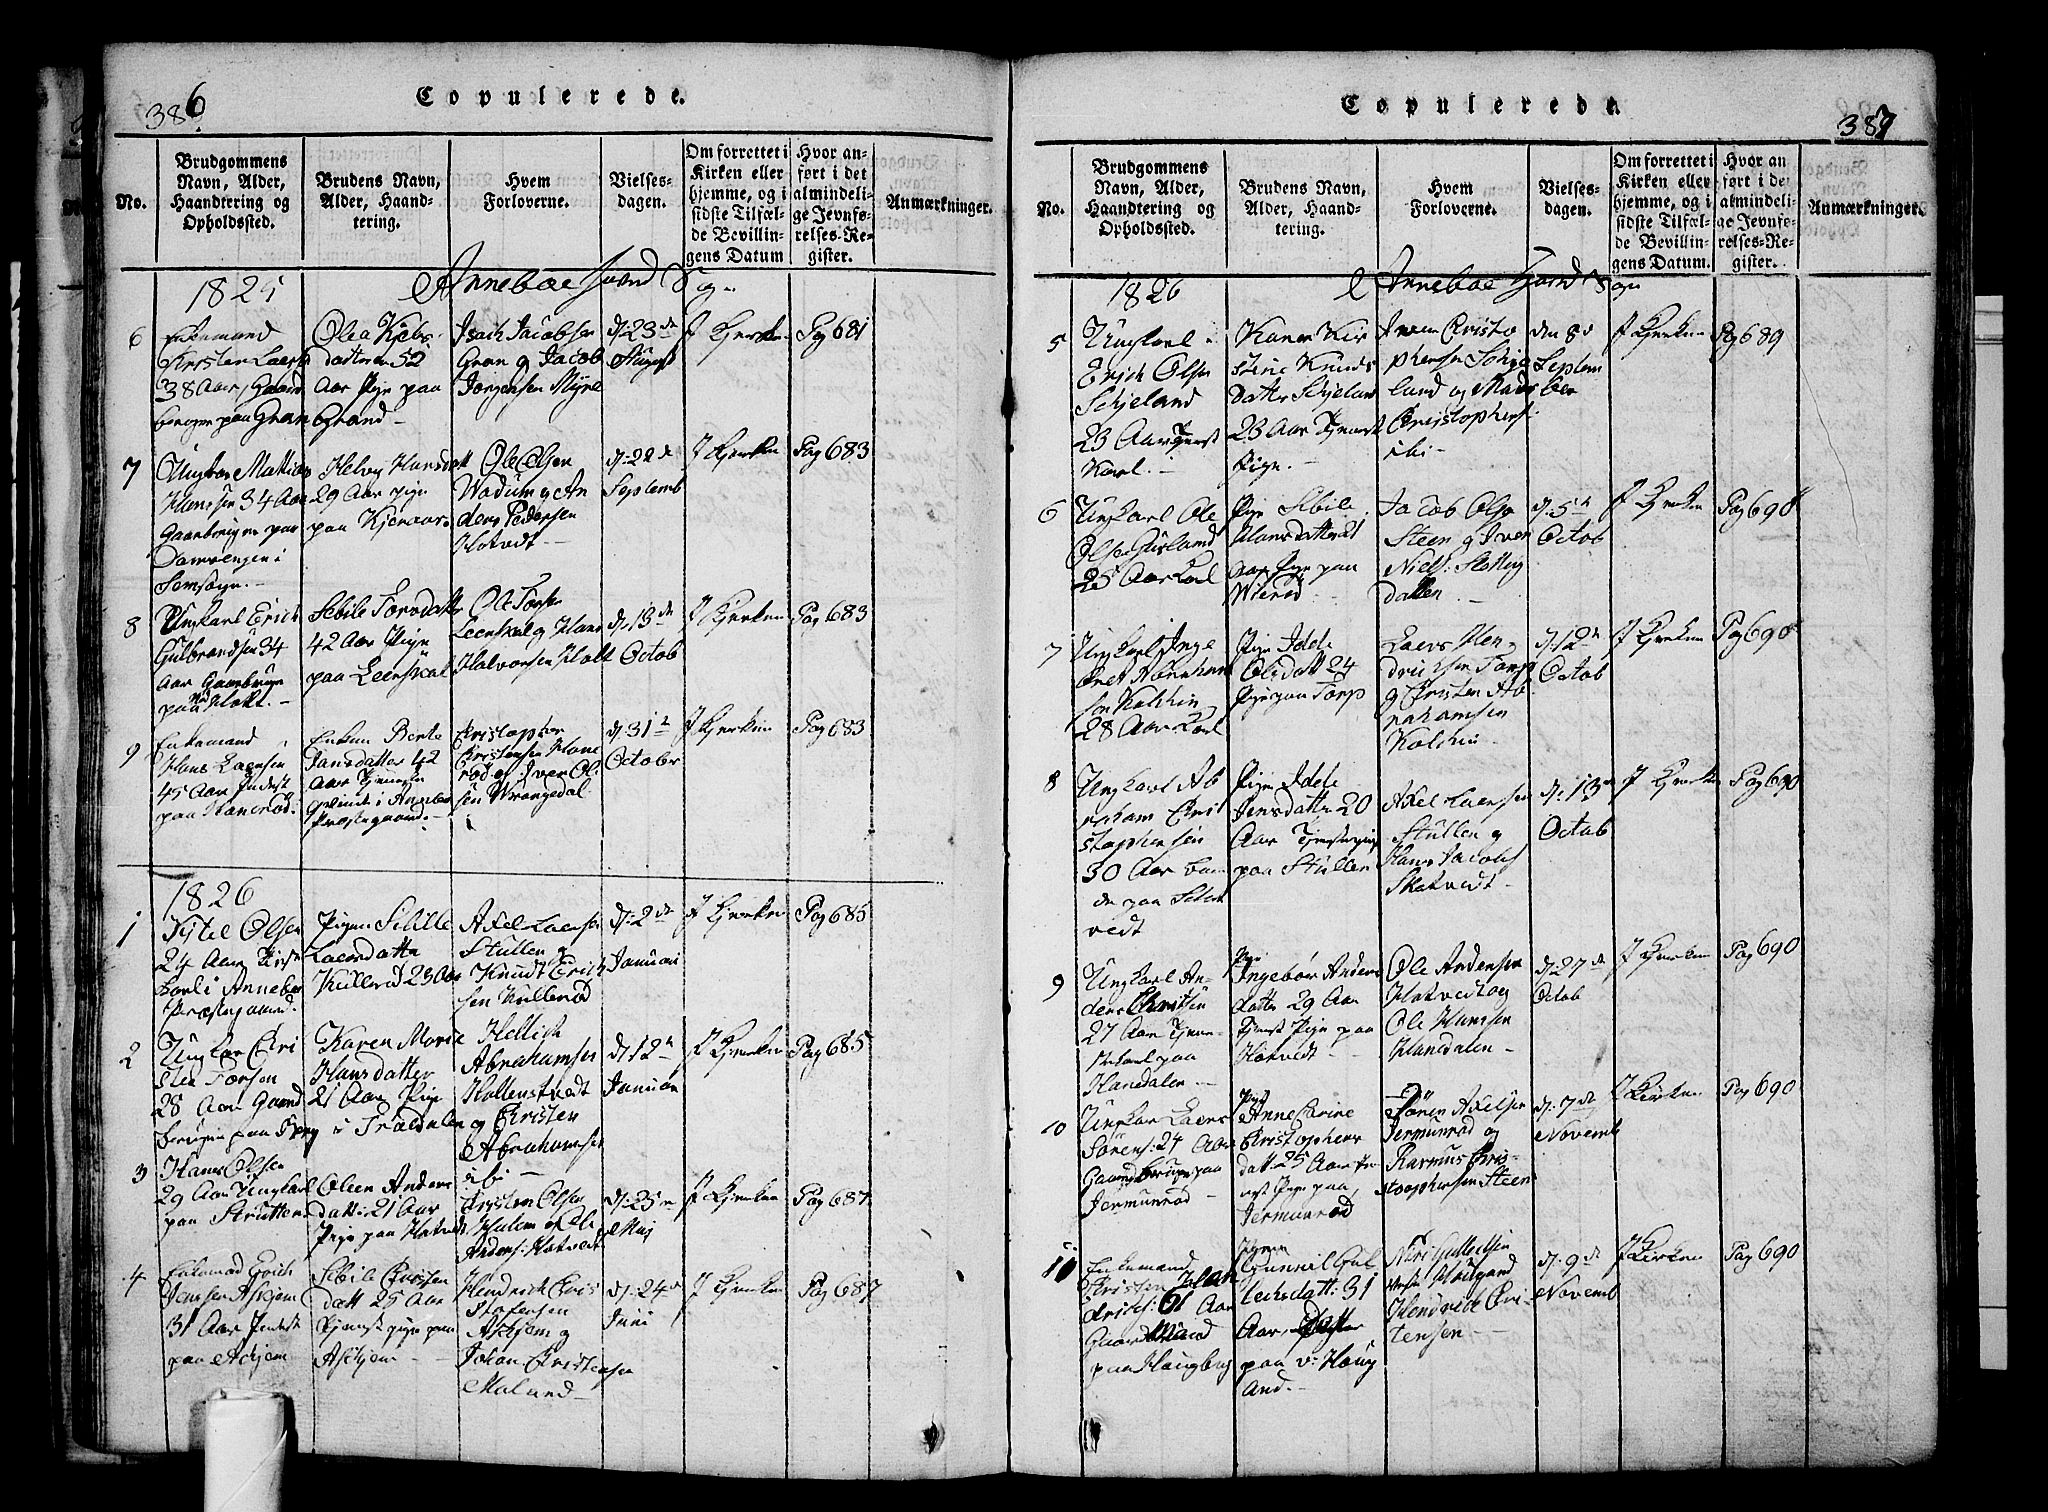 386
Copulerede.
No.
Brudgommens
Navn, Alder,
Haandtering og
Opholdssted.
Brudens Navn,
Alder, Haand-
tering.
Hvem
Forloverne.
Vielses-
dagen.
Om forrettet i
Kirken eller
hjemme, og i
sidste Tilfæl-
de Bevillin-
gens Datum
Hvor an-
ført i det
almindeli-
ge Jevnfø-
relses-Re-
gister.
Anmærkninger.
1825
Anneboe
6
Enkemand
38 Aar, Gaard
paa Gran
Olea
datter 52
Aar Pige paa
Grand
Isach Jacobsen
Gran og Jacob
Jorgensen Myre
d: 23de
I Kjerken
Pag 681
7
Hanssen 34 Aar
Gaardbruger paa
i
Semsogn.
Helvig Hansdatt
29 Aar pige
paa
Ole Olsen
Wadum og An
ders Pedersen
Hotvedt
d: 22d
Septemb
I Kjerken
Pag 683
8
Ungkarl Erich
Gulbrandsen 34
Aar Gaardbruger
paa Holtt.
Sebile Torsdatter
42 Aar Pige
paa Leenskal
Ole Torsen
Leenskal og Hans
Halvorsen Holtt
d. 13de
Octob
I Kjerken
Pag 683
9
Enkemand
Hans Laersen
45 Aar Inderst
paa Hanerød.
Enken Berte
Jansdatter 42
Aar
i Annebo
Præstegaard.
Cristopher
Cristensen Hane
rød og Iver Ol
sen Wrangedal
d: 31te
October
I Kjerken
Pag 683
1826
1
Kjstel Olsen
24 Aar
Karl i Annebo
Præstegaard.
Pigen Sibille
Laersdatter
Kullerød 23 Aar
Axel Laersen
Stullen og
Knudt Erich
sen Kullerød
d: 2de
Januari
I Kjerken
Pag 685
2
Ungkar Cri
sten Torsen
28 Aar Gaard
bruger paa Berg
Karen Marie
Hansdatter
21 Aar Pige
i Trældalen
Hellich
Abrahamsen
Hollenstvedt
og Cristen
Abrahamsen
ibi
d 12te
Januar
I Kjerken
Pag 685
3
Hans Olsen
29 Aar Ungkarl
paa Strutten
Oleen Anders
datt: 21 Aar
Pige paa Hotvedt
Cristen Olsen
Holem og Ole
Anders: Hotvedt
d: 25
Maj
I Kjerken
Pag 687
4
Enkemand Erich
Jansen Askjem
31 Aar Inderst
paa Askjem
Sebile Cristen
datt 25 Aar
Tjenst pige paa
Askjem
Hendrich Cris
stofersen
Askjem og
Johan Cristensen
Molund
d: 24d
Juni
I Kjerken
Pag 687
387
Copulerede.
No.
Brudgommens
Navn, Alder,
Haandtering og
Opholdssted.
Brudens Navn,
Alder, Haand-
tering.
Hvem
Forloverne.
Vielses-
dagen.
Om forrettet i
Kirken eller
hjemme, og i
sidste Tilfæl-
de Bevillin-
gens Datum.
Hvor an
ført i det
almindeli-
ge Jevnfø-
relses-Re-
gister.
Anmærkninger.
1826
Anneboe
5
Ungkarl
Erich Olsen
Schjeland
23 Aar Tjenst
Karl.
Karen Kir
stine Knuds
datter Schjelan
23 Aar Tjenst
Pige.
Iver Cristo
phersen Schje
land og Mads
Christophers
ibi
den 8d
Septem
ber
I Kjerken
Pag 689
6
Ungkarl Ole
Olsen
25 Aar Karl
Pige Sibile
Hansdatter 21
Aar Pige paa
Wierød
Jacob Olsen
Steen og Iver
Niels:
dallen
d: 5te
Octob
I Kjerken
Pag 690
7
Ungkarl Inge
bret Abraham
sen Kolkin
28 Aar Karl
Pige Idde
Olsdatt 24
Pige paa Torp
Laers Hen
drichsen Torp
og Cristen Ab
rahamsen
Kolkin
d: 12te
Octob
I Kjerken
Pag 690
8
Ungkarl Ab
raham Cris
stophersen
30 Aar bon
de paa
vedt
Pige Idde
Jensdatter 20
Aar Tjenstepige
paa Stullen
Axel Laersen
Stullen og
Hans Jacobs
Skatvedt
d: 13de
Octob
I Kjerken
Pag 690
9
Ungkarl An-
ders
27 Aar Tjene-
stkarl paa
Hanedalen
Pige
Ingebor Anders
datter 29 Aar
Tjenst Pige paa
Hotvedt
Ole Andersen
Hotvedt og
Ole Hansen
Hanedalen
d: 27de
Octob
I Kjerken
Pag 690
10
Ungkar Laers
Sörens: 24 Aar
Gaard Bruger paa
Jermunrød
Pige
Anne Carine
Cristophers
datt: 25 Aar
Pige paa
Jermunrød
Sören Axelsen
Jermunrød og
Rasmus Cris-
stophersen Steen
d: 7de
Novemb
I Kirken
Pag 690
11
Enkemand
Cristen
61 Aar
Gaardmand
paa Haugberg
Pigen
Gunnil Gul
lechsdatt: 31
Aar,
paa
and.
Hendrich Cri-
stensen
d: 9de
Novemb
I Kirken
Pag 690